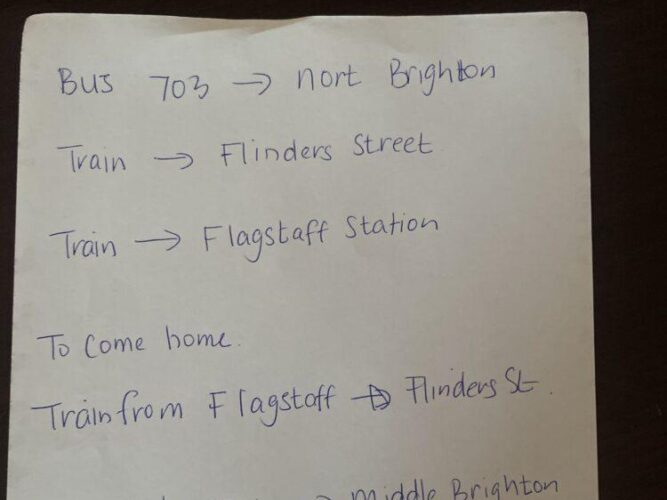 Bus 703 → nort Brighton
Train → Flinders Street
Train → Flagstaff Station
To come home.
Train from Flagstaff → Flinders St.
→ middle Brighton